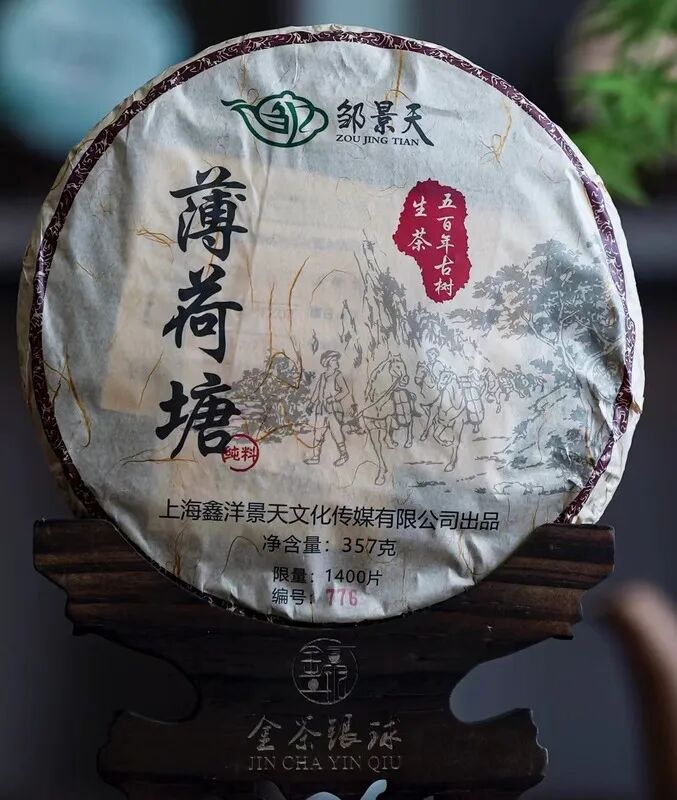 邹景天
ZOU JING TIAN
薄荷塘
纯料
五百年古树
生茶
上海鑫洋景天文化传媒有限公司出品
净含量：357克
限量：1400片
编号：776
金茶银球
JIN CHA YIN QIU